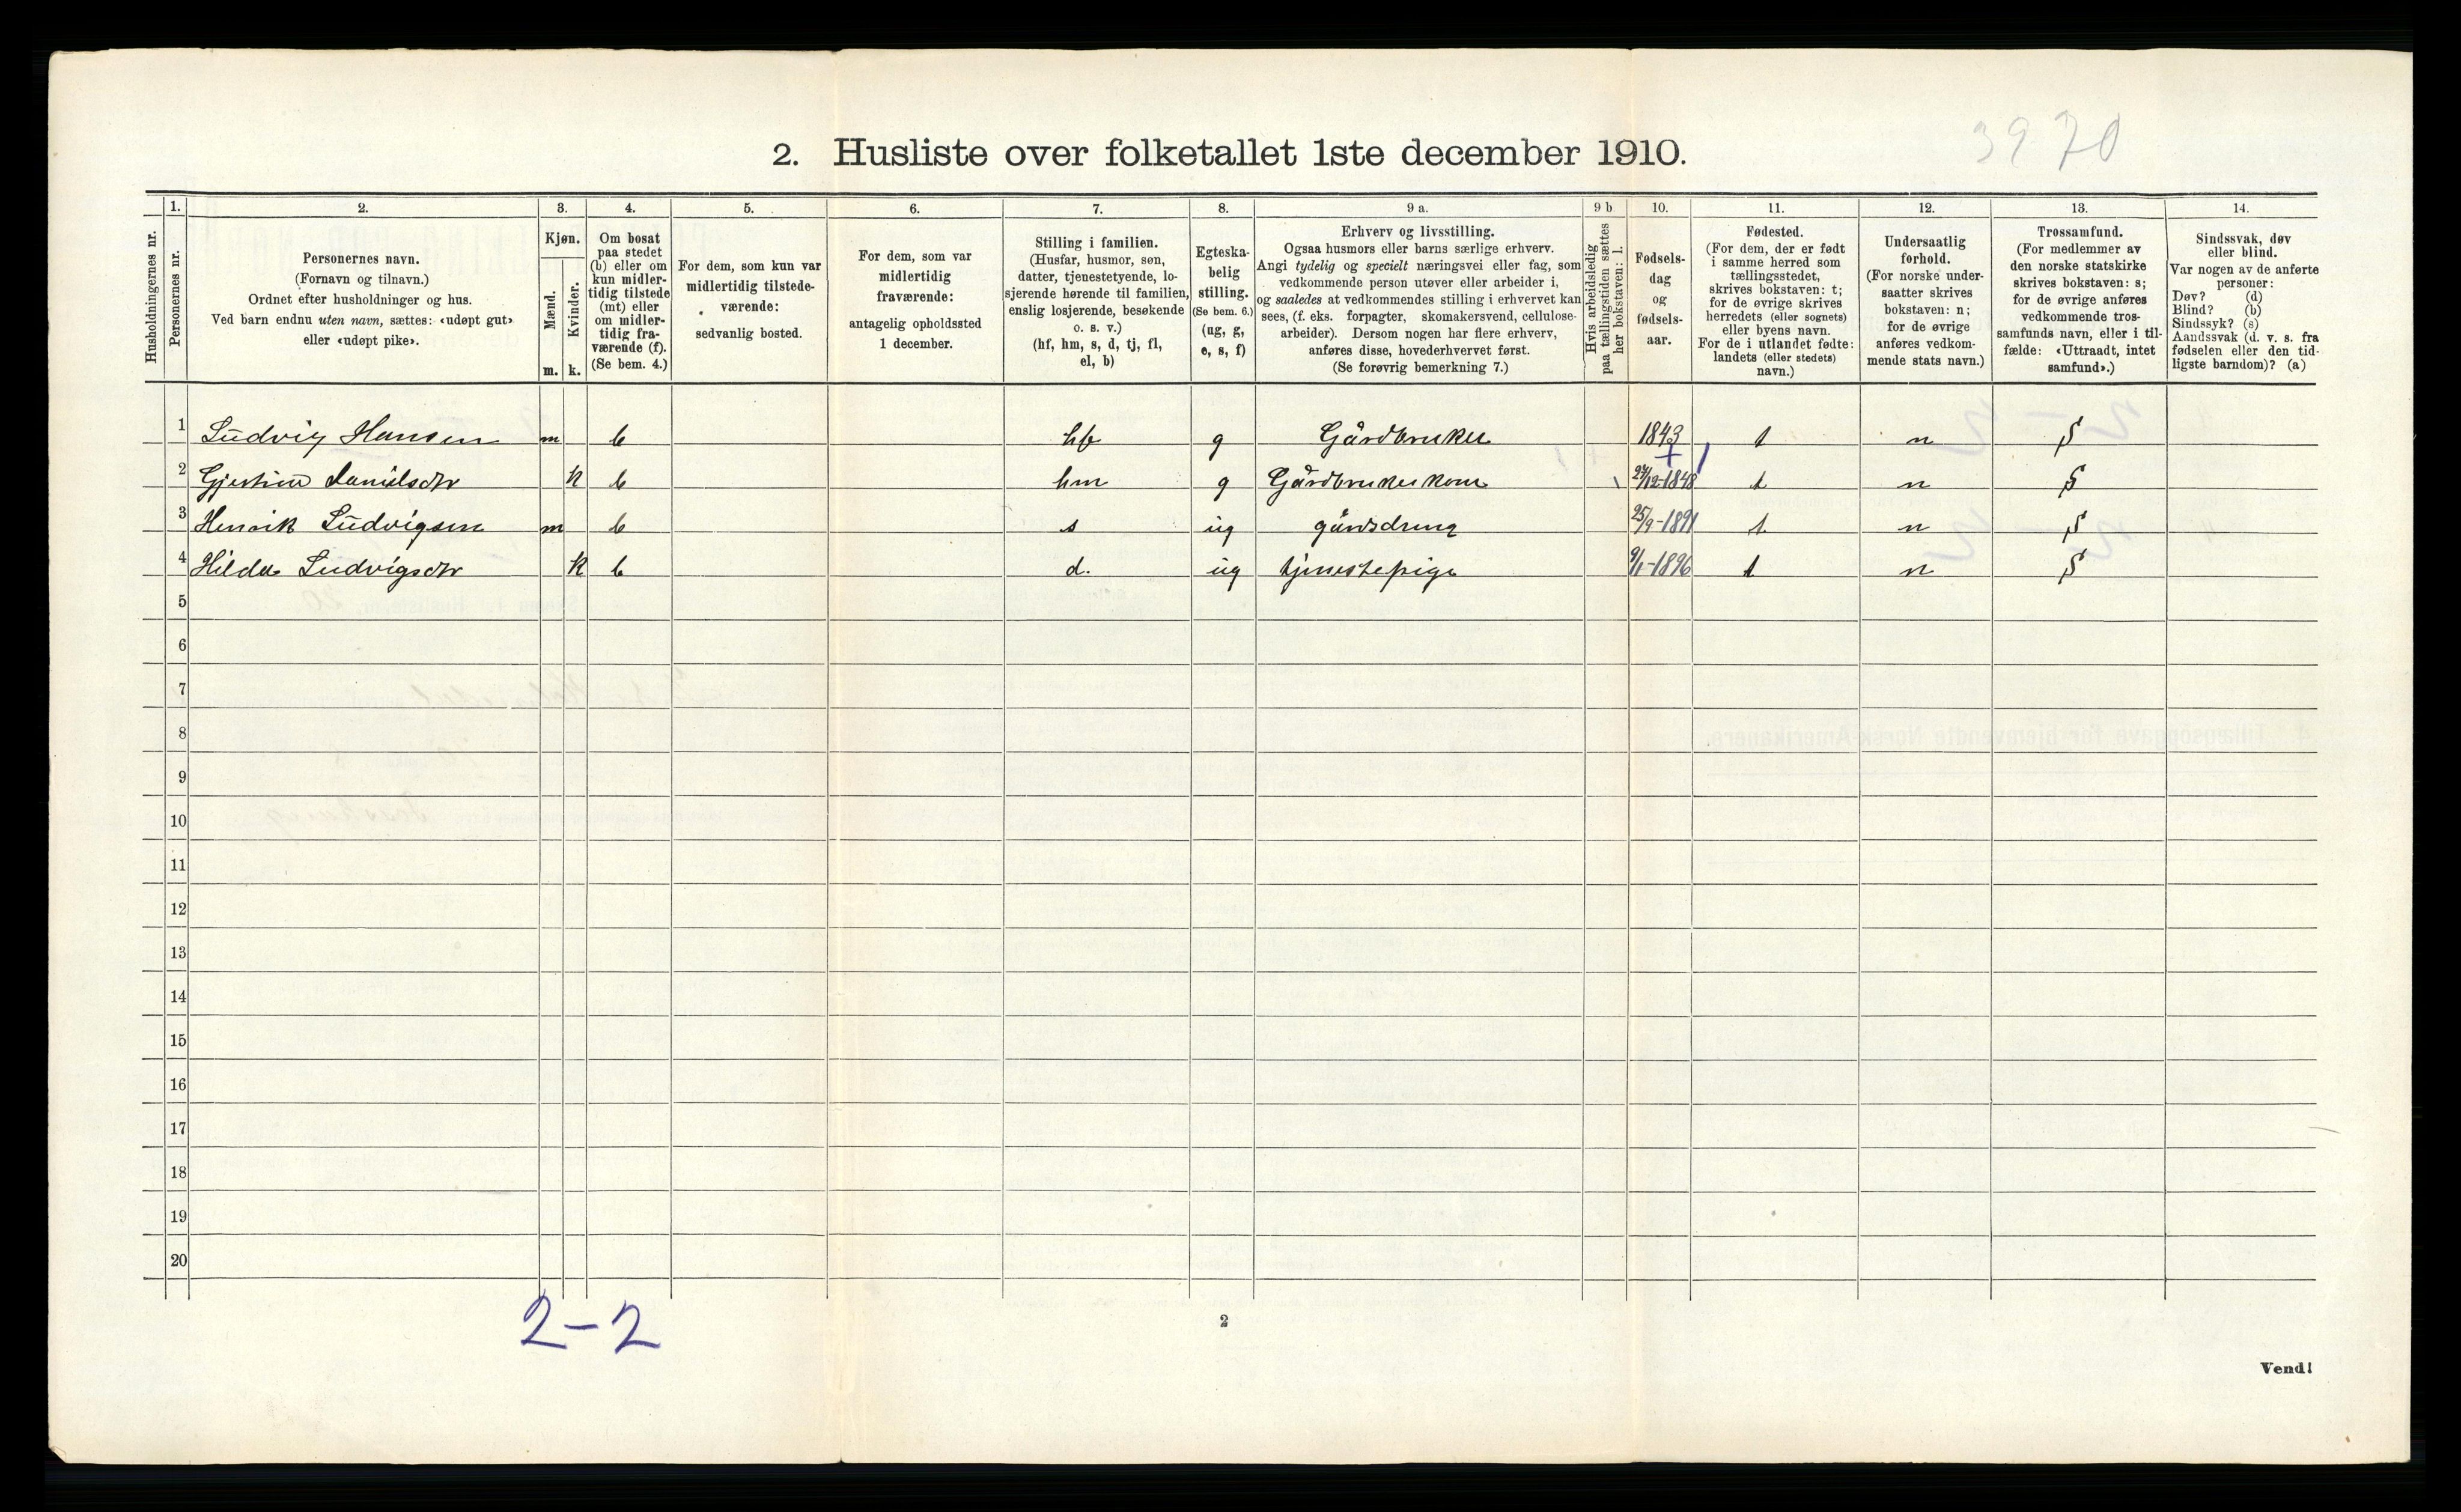 3970
2. Husliste over folketallet 1ste december 1910.
Husholdningernes nr.
1. Personernes nr.
2. Personernes navn.
(Fornavn og tilnavn.)
Ordnet efter husholdninger og hus.
Ved barn endnu uten navn, sættes: «udøpt gut»
eller «udøpt pike».
3. Kjøn.
Mænd. Kvinder.
m. k.
4. Om bosat
paa stedet
(b) eller om
kun midler-
tidig tilstede
(mt) eller
om midler-
tidig fra-
værende (f).
(Se bem. 4.)
5. For dem, som kun var
midlertidig tilstede-
værende:
sedvanlig bosted.
6. For dem, som var
midlertidig
fraværende:
antagelig opholdssted
1 december.
7. Stilling i familien.
(Husfar, husmor, søn,
datter, tjenestetyende, lo-
sjerende hørende til familien,
enslig losjerende, besøkende
o. s. v.)
(hf, hm, s, d, tj, fl,
el, b)
8. Egteska-
belig
stilling.
(Se bem. 6.)
(ug, g,
e, s, f)
9 a. Erhverv og livsstilling.
Ogsaa husmors eller barns særlige erhverv.
Angi tydelig og specielt næringsvei eller fag, som
vedkommende person utøver eller arbeider i,
og saaledes at vedkommendes stilling i erhvervet kan
sees, (f. eks. forpagter, skomakersvend, cellulose-
arbeider). Dersom nogen har flere erhverv,
anføres disse, hovederhvervet først.
(Se forøvrig bemerkning 7.)
9 b Hvis arbeidsledig
paa tællingstiden sættes
her bokstaven: l.
10. Fødsels-
dag
og
fødsels-
aar.
11. Fødested.
(For dem, der er født
i samme herred som
tællingsstedet,
skrives bokstaven: t;
for de øvrige skrives
herredets (eller sognets)
eller byens navn.
For de i utlandet fødte:
landets (eller stedets)
navn.)
12. Undersaatlig
forhold.
(For norske under-
saatter skrives
bokstaven: n;
for de øvrige
anføres vedkom-
mende stats navn.)
13. Trossamfund.
(For medlemmer av
den norske statskirke
skrives bokstaven: s;
for de øvrige anføres
vedkommende tros-
samfunds navn, eller i til-
fælde: «Uttraadt, intet
samfund».)
14. Sindssvak, døv
eller blind.
Var nogen av de anførte
personer:
Døv? (d)
Blind? (b)
Sindssyk? (s)
Aandssvak (d. v. s. fra
fødselen eller den tid-
ligste barndom)? (a)
1 Ludvig Hansen m b hf g Gårdbruker 1843 t n S
2 Danielsdtr k b hm g Gårdbrukerkone 27/12-1848 t n S
3 Henrik Ludvigsen m b s ug gårdsdreng 25/9-1891 t n S
4 Hilda Ludvigsdtr k b d. ug tjenestepige 9/1-1896 t n S
5
6
7
8
9
10
11
12
13
14
15
16
17
18
19
20
2-2
2
Vend!